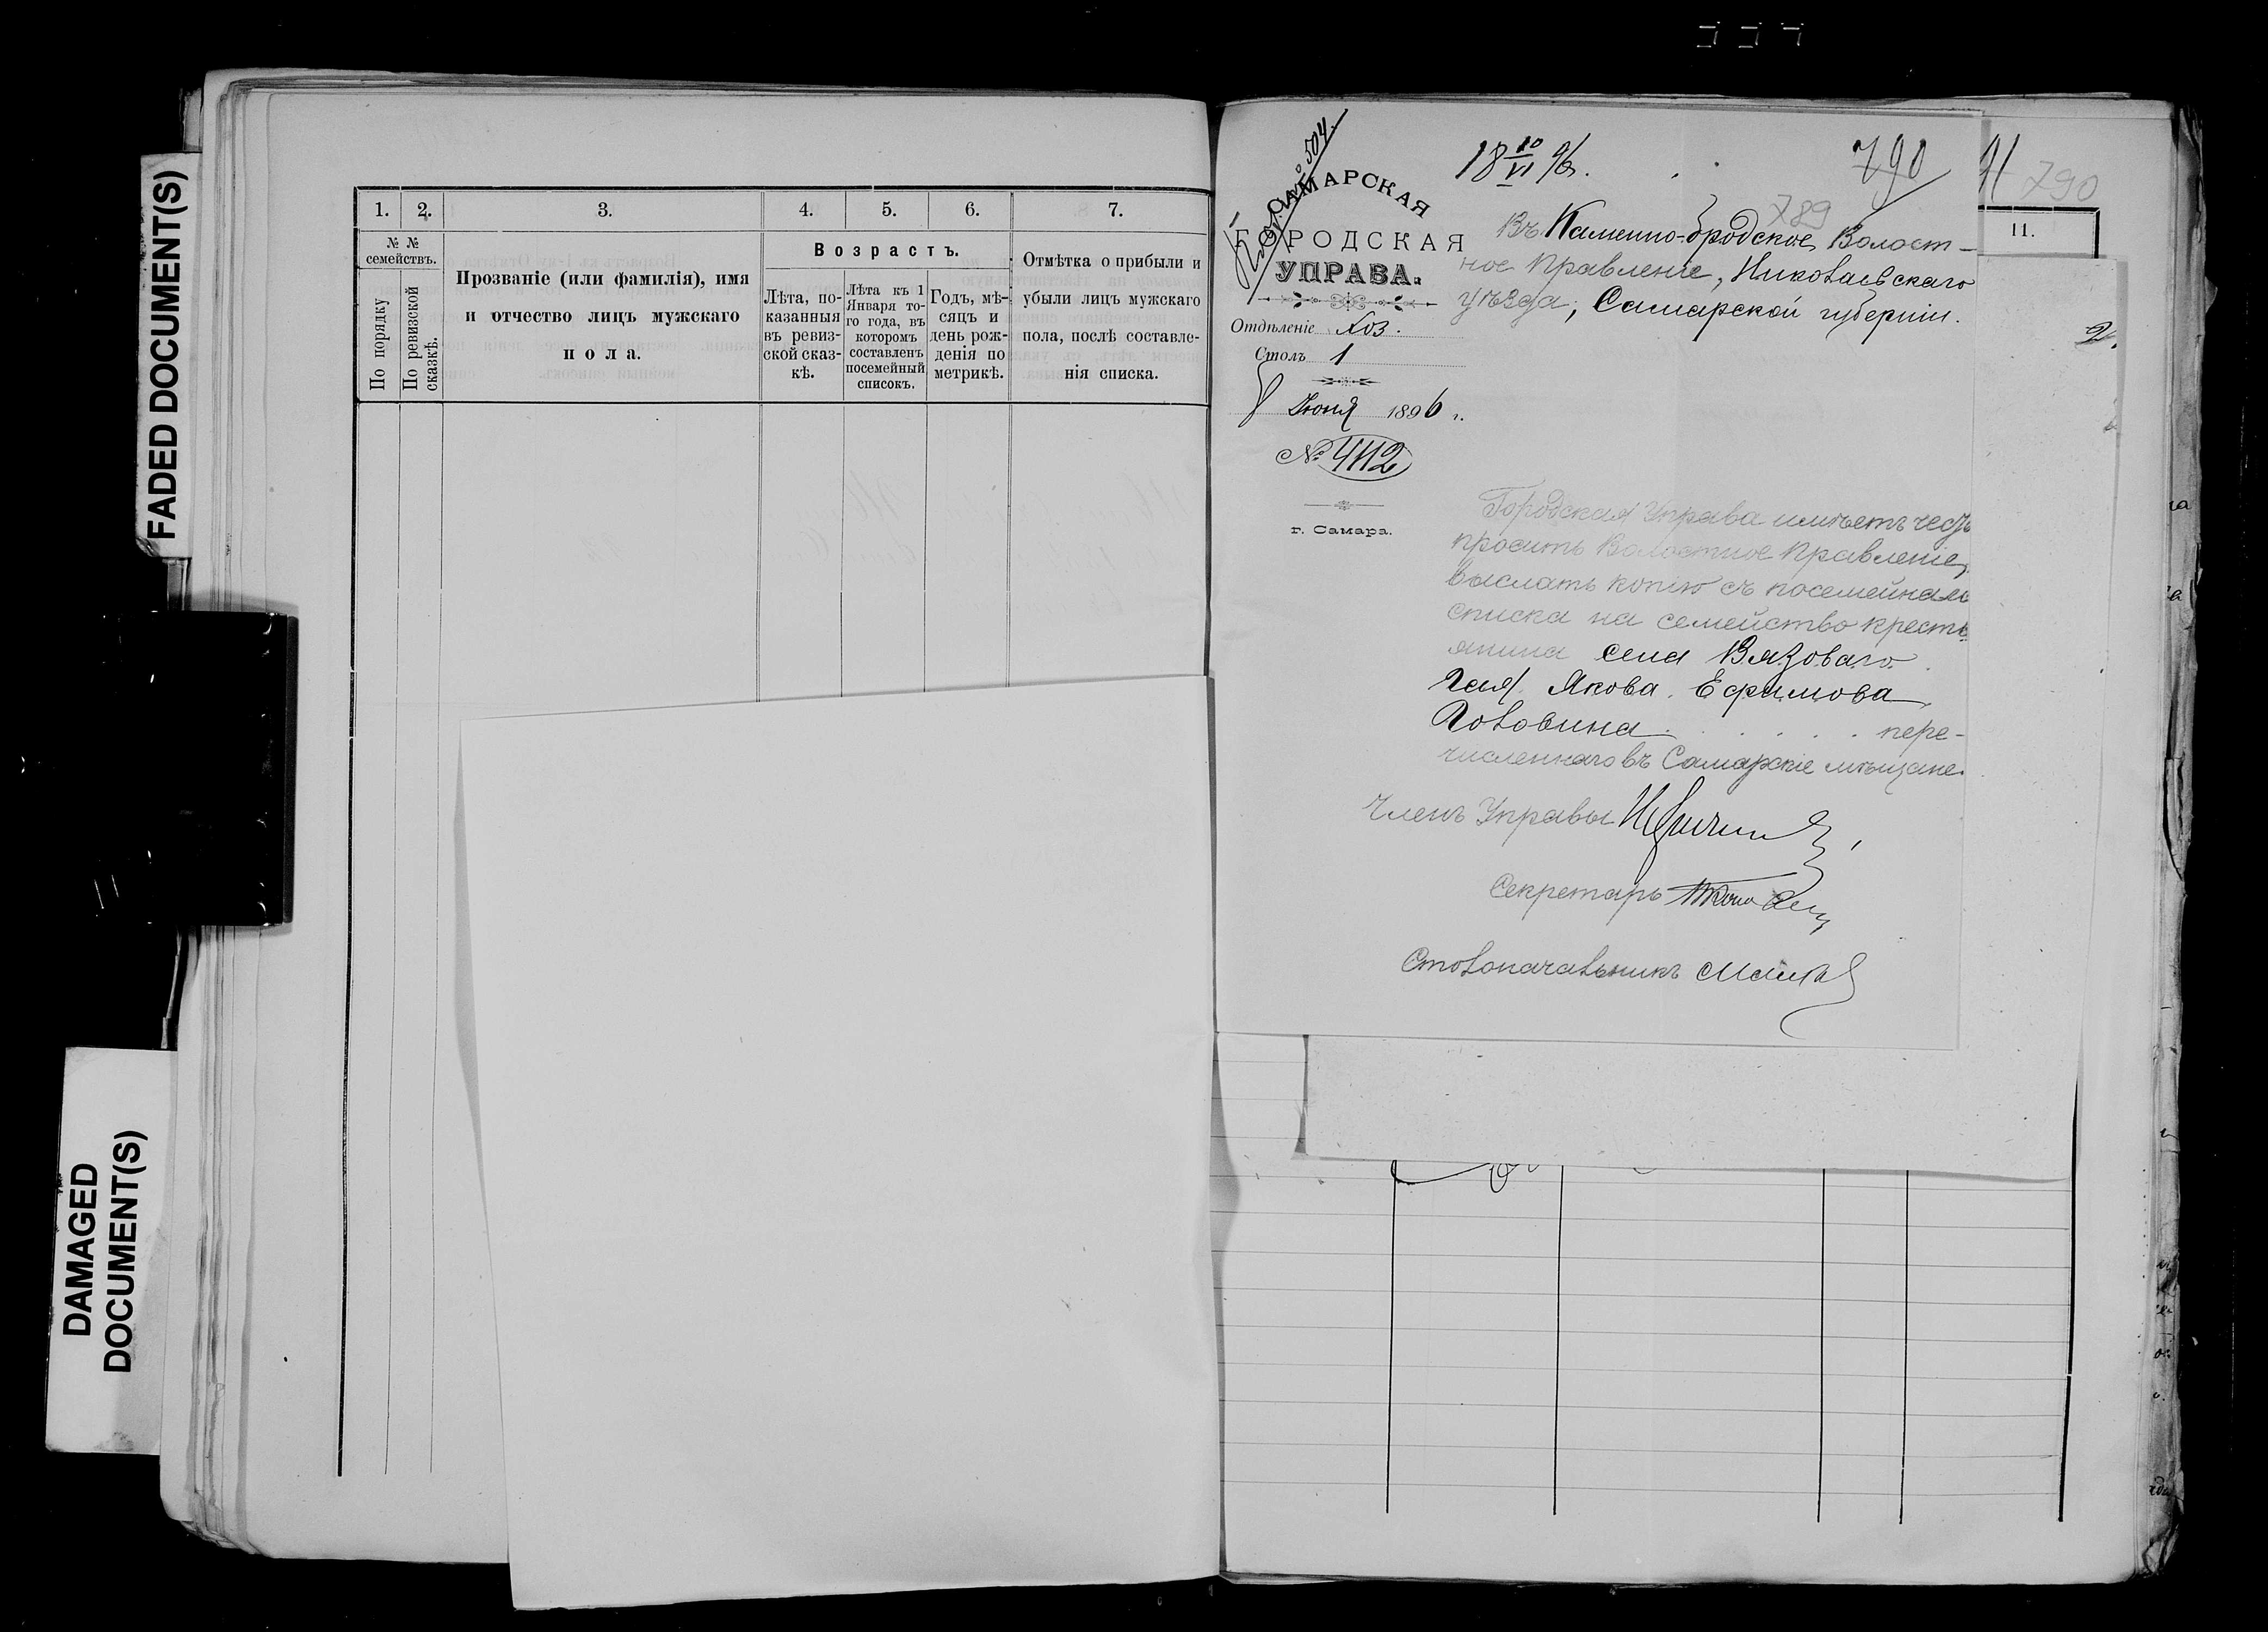 FADED DOCUMENT(S)
DAMAGED
DOCUMENT(S)
1. 2. 3. 4. 5. 6. 7.
№ №
семействъ.
По порядку
По ревизской
сказкѣ.
Прозваніе (или фамилія), имя
и отчество лицъ мужскаго
пола.
Возрастъ.
Лѣта, по-
казанныя
въ ревиз-
ской сказ-
кѣ.
Лѣта къ 1
Января то-
го года, въ
которомъ
составленъ
посемейный
списокъ.
Годъ, мѣ-
сяцъ и
день рож-
денія по
метрикѣ.
Отмѣтка о прибыли и
убыли лицъ мужскаго
пола, послѣ составле-
нія списка.
№ 504.
САМАРСКАЯ
ГОРОДСКАЯ
УПРАВА.
Отдѣленіе Хоз.
Столъ 1
8 Июня 1896 г.
№ 4112
г. Самара.
18 10/VI 96.
790
789
790
11.
Въ Каменно-Бродское Волост-
ное Правленіе, Николаевскаго
уѣзда, Самарской губерніи.
Городская Управа имѣетъ честь
просить Волостное Правленіе,
выслать копію съ посемейнаго
списка на семейство кресть
янина села Вязоваго
Гая Якова Ефимова
Головина пере-
численнаго въ Самарскіе мѣщане.
Членъ Управы
Секретарь
Столоначальникъ